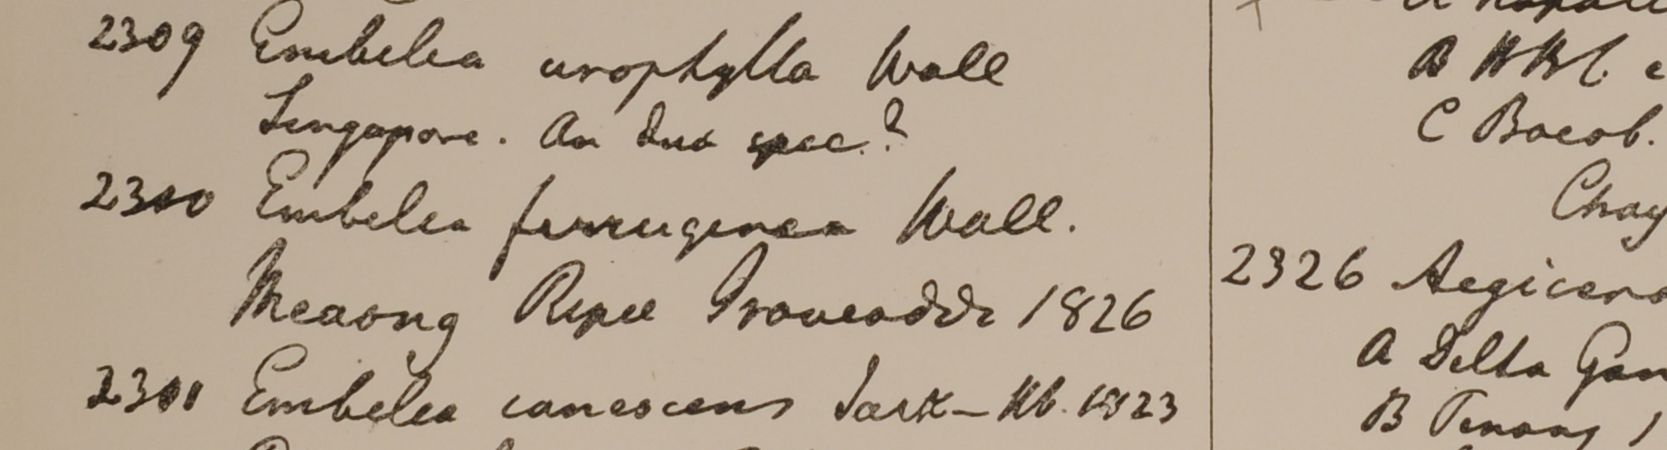 2309 Embelea urophylla Wall
Singapore. An dua spec.?
2310 Embelea ferruginea Wall.
Ripae 1826
2311 Embelea canescens Jack — Hb. 1823
B HBC. c
C Bocob.
2326 Aegicera
A Delta Gan
B Penang 1